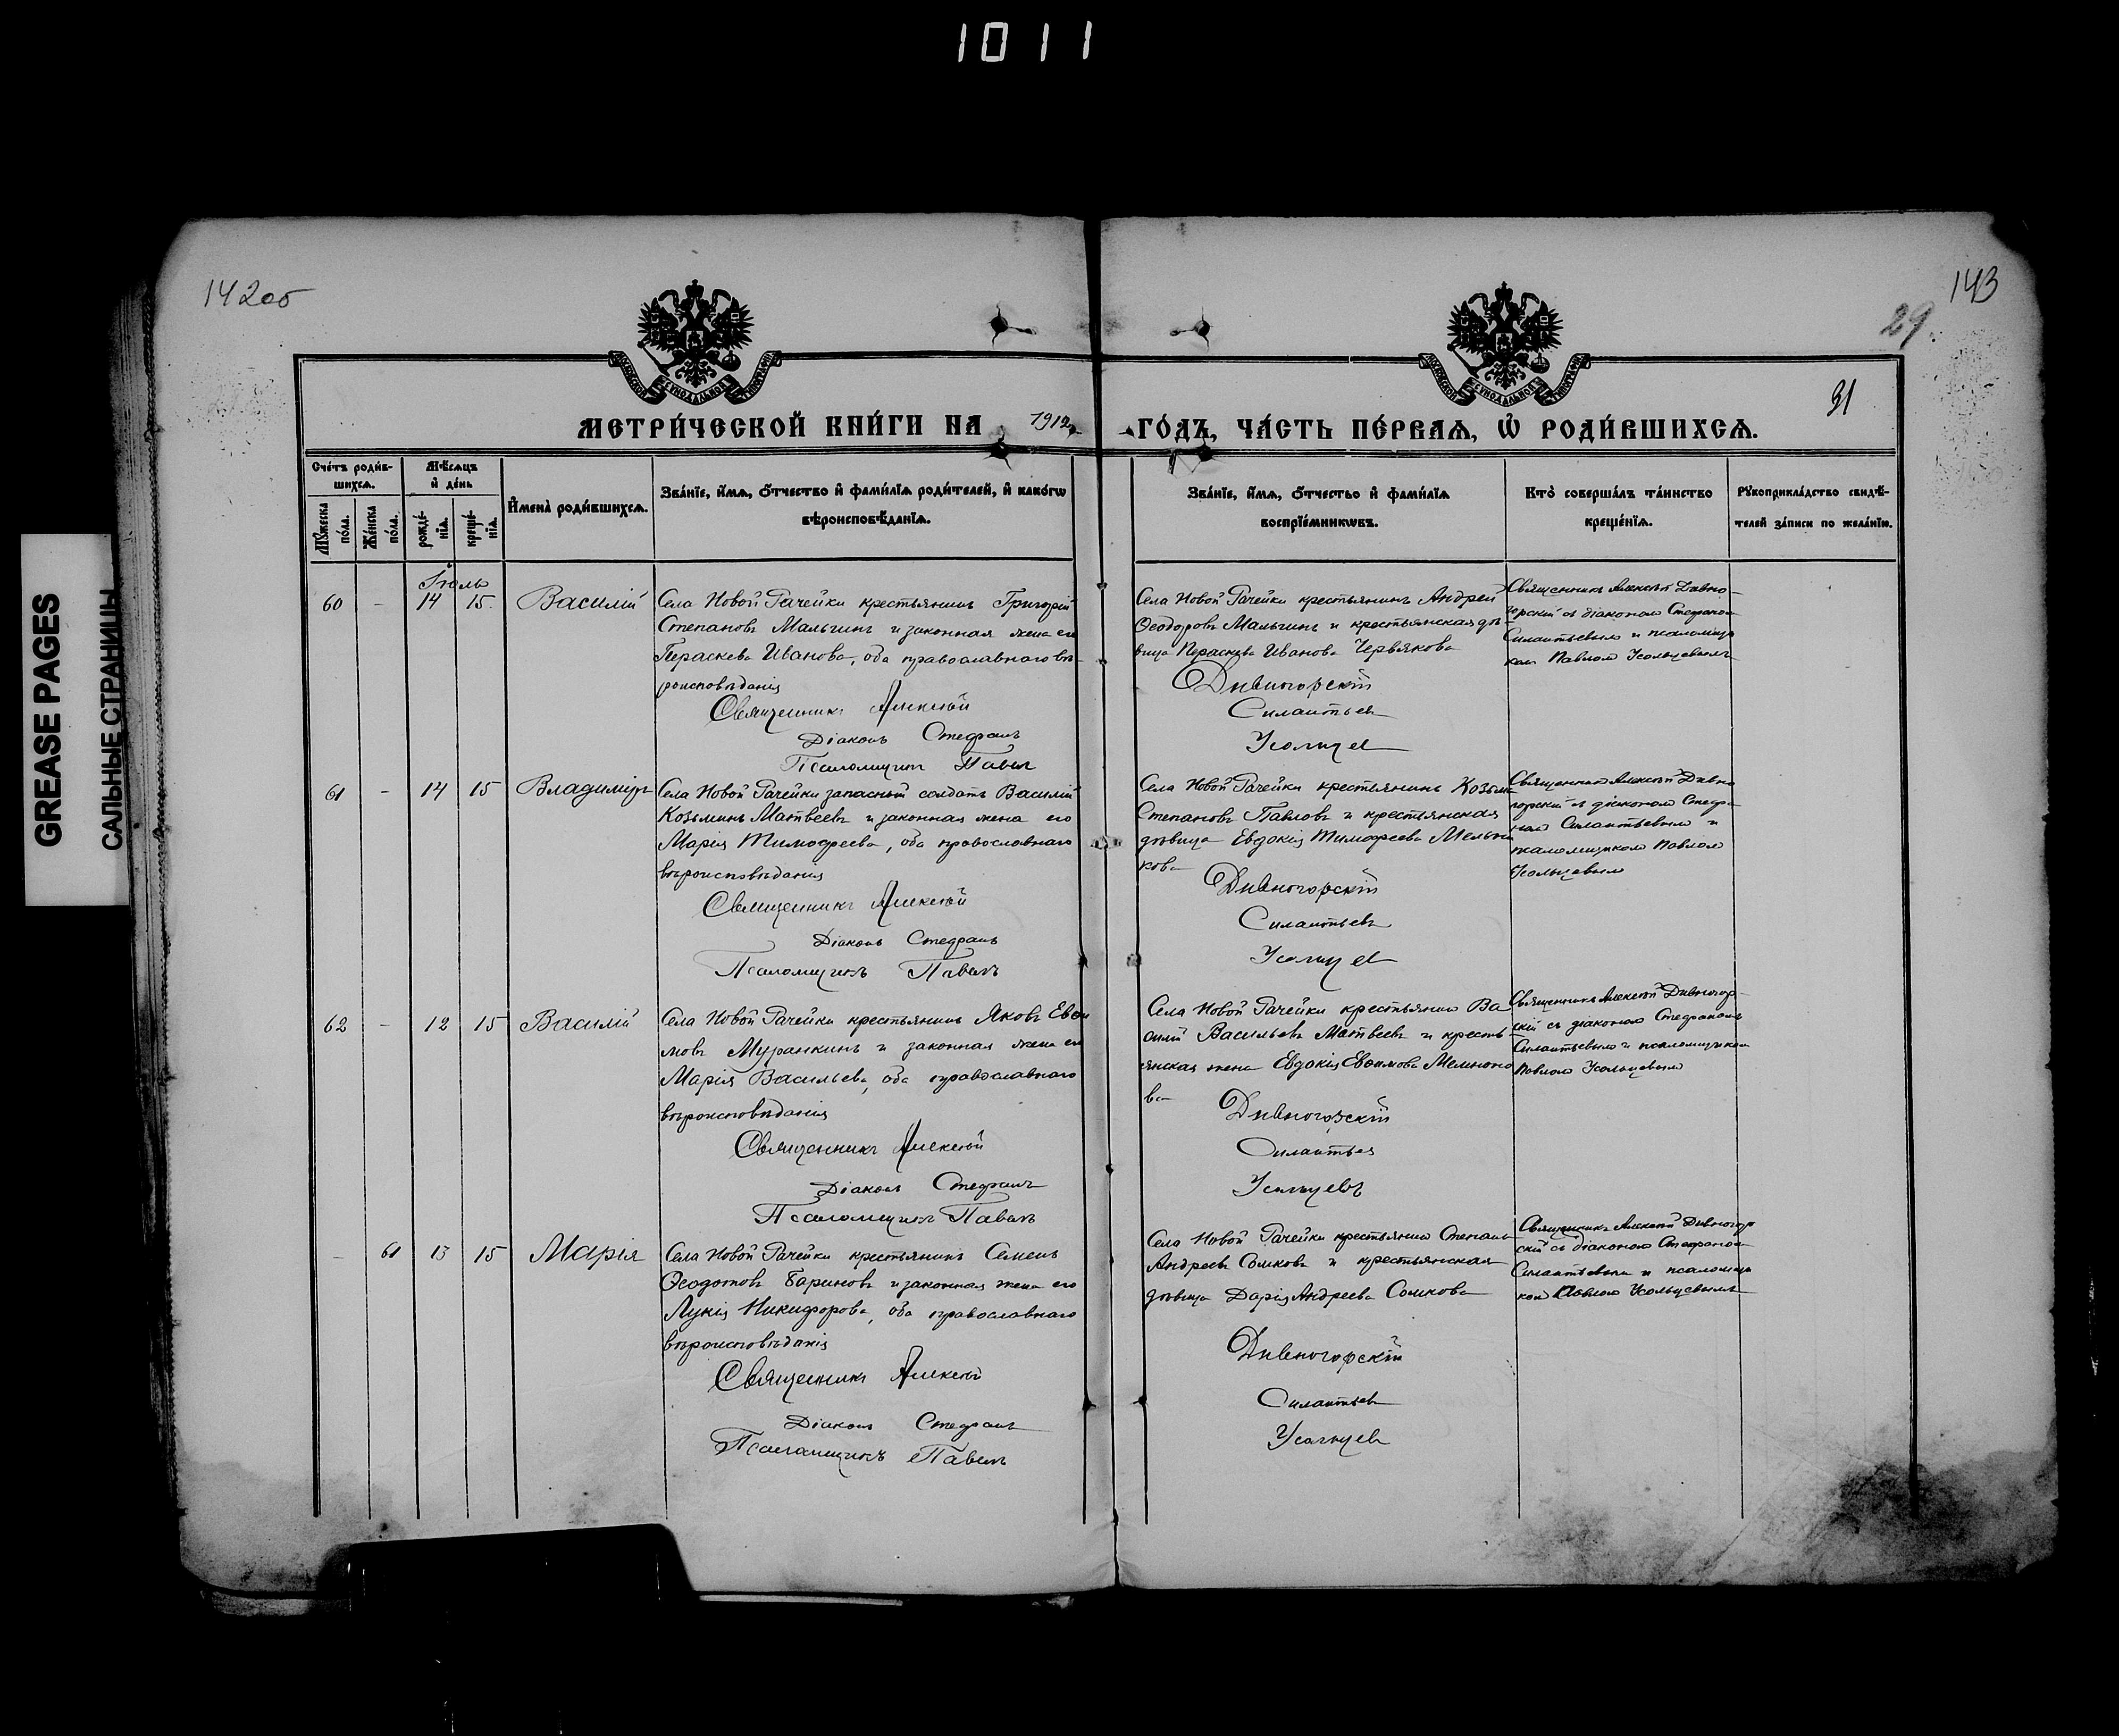 1011
GREASE PAGES
САЛЬНЫЕ СТРАНИЦЫ
142об
143
29
31
МЕТРИ́ЧЕСКОЙ КНИ́ГИ НА 1912 ГО́ДЪ, ЧА́СТЬ ПЕ́РВАѦ, Ѽ РОДИ́ВШИХСѦ.
Сче́тъ роди́в-
шихсѧ.
Мѣ́сѧцъ
и҆ де́нь
Мꙋ́жеска
по́ла.
Же́нска
по́ла.
рожде́-
нїѧ.
креще́-
нїѧ.
И҆мена̀ роди́вшихсѧ.
Зва́нїе, и҆́мѧ, ѻ҆́тчество и҆ фами́лїѧ роди́телей, и҆ како́гѡ
вѣроисповѣ́данїѧ.
Зва́нїе, и҆́мѧ, ѻ҆́тчество и҆ фами́лїѧ
воспрїе́мникѡвъ.
Кто̀ соверша́лъ та́инство
креще́нїѧ.
Рꙋкоприкла́дство свидѣ́-
телей за́писи по жела́нїю.
Іюль
60 - 14 15. Василій
Села Новой Рачейки крестьянинъ Григорій
Степановъ Малыгинъ и законная жена его
Параскева Иванова, оба православнаго вѣ-
роисповѣданія
Священникъ Алексѣй
Діаконъ Стефанъ
Псаломщикъ Павелъ
Села Новой Рачейки крестьянинъ Андрей
Ѳеодоровъ Малыгинъ и крестьянская дѣ-
вица Параскева Иванова Червякова
Дивногорскій
Силантьевъ
Усольцевъ
Священникъ Алексѣй Дивно-
горскій съ діакономъ Стефаномъ
Силантьевымъ и псаломщи
комъ Павломъ Усольцевымъ
61 - 14 15 Владиміръ
Села Новой Рачейки запасный солдатъ Василій
Козьминъ Матвеевъ и законная жена его
Марія Тимофеева, оба православнаго
вѣроисповѣданія
Священникъ Алексѣй
Діаконъ Стефанъ
Псаломщикъ Павелъ
Села Новой Рачейки крестьянинъ Козьма
Степановъ Павловъ и крестьянская
дѣвица Евдокія Тимофеева Мельни
кова
Дивногорскій
Силантьевъ
Усольцевъ
Священникъ Алексѣй Дивно
горскій съ діакономъ Стефа-
номъ Силантьевымъ и
псаломщикомъ Павломъ
Усольцевымъ
62 - 12 15 Василій
Села Новой Рачейки крестьянинъ Яковъ Евѳи
мовъ Муранкинъ и законная жена его
Марія Васильева, оба православнаго
вѣроисповѣданія
Священникъ Алексѣй
Діаконъ Стефанъ
Псаломщикъ Павелъ
Села Новой Рачейки крестьянинъ Ва
силій Васильевъ Матвеевъ и кресть-
янская жена Евдокія Евѳимова
ва
Дивногорскій
Силантьев
Усольцевъ
Священникъ Алексѣй Дивногор-
скій съ діакономъ Стефаномъ
Силантьевымъ и псаломщикомъ
Павломъ Усольцевымъ
- 61 13 15 Марія
Села Новой Рачейки крестьянинъ Семенъ
Ѳеодотовъ Бариновъ и законная жена его
Лукія Никифорова, оба православнаго
вѣроисповѣданія
Священникъ Алексѣй
Діаконъ Стефанъ
Псаломщикъ Павелъ
Села Новой Рачейки крестьянинъ Степанъ
Андреевъ Сомковъ и крестьянская
дѣвица Дарія Андреева Сомкова
Дивногорскій
Силантьев
Усольцев
Священникъ Алексѣй Дивногор
скій съ діакономъ Стефаномъ
Силантьевымъ и псаломщи
комъ Павломъ Усольцевымъ